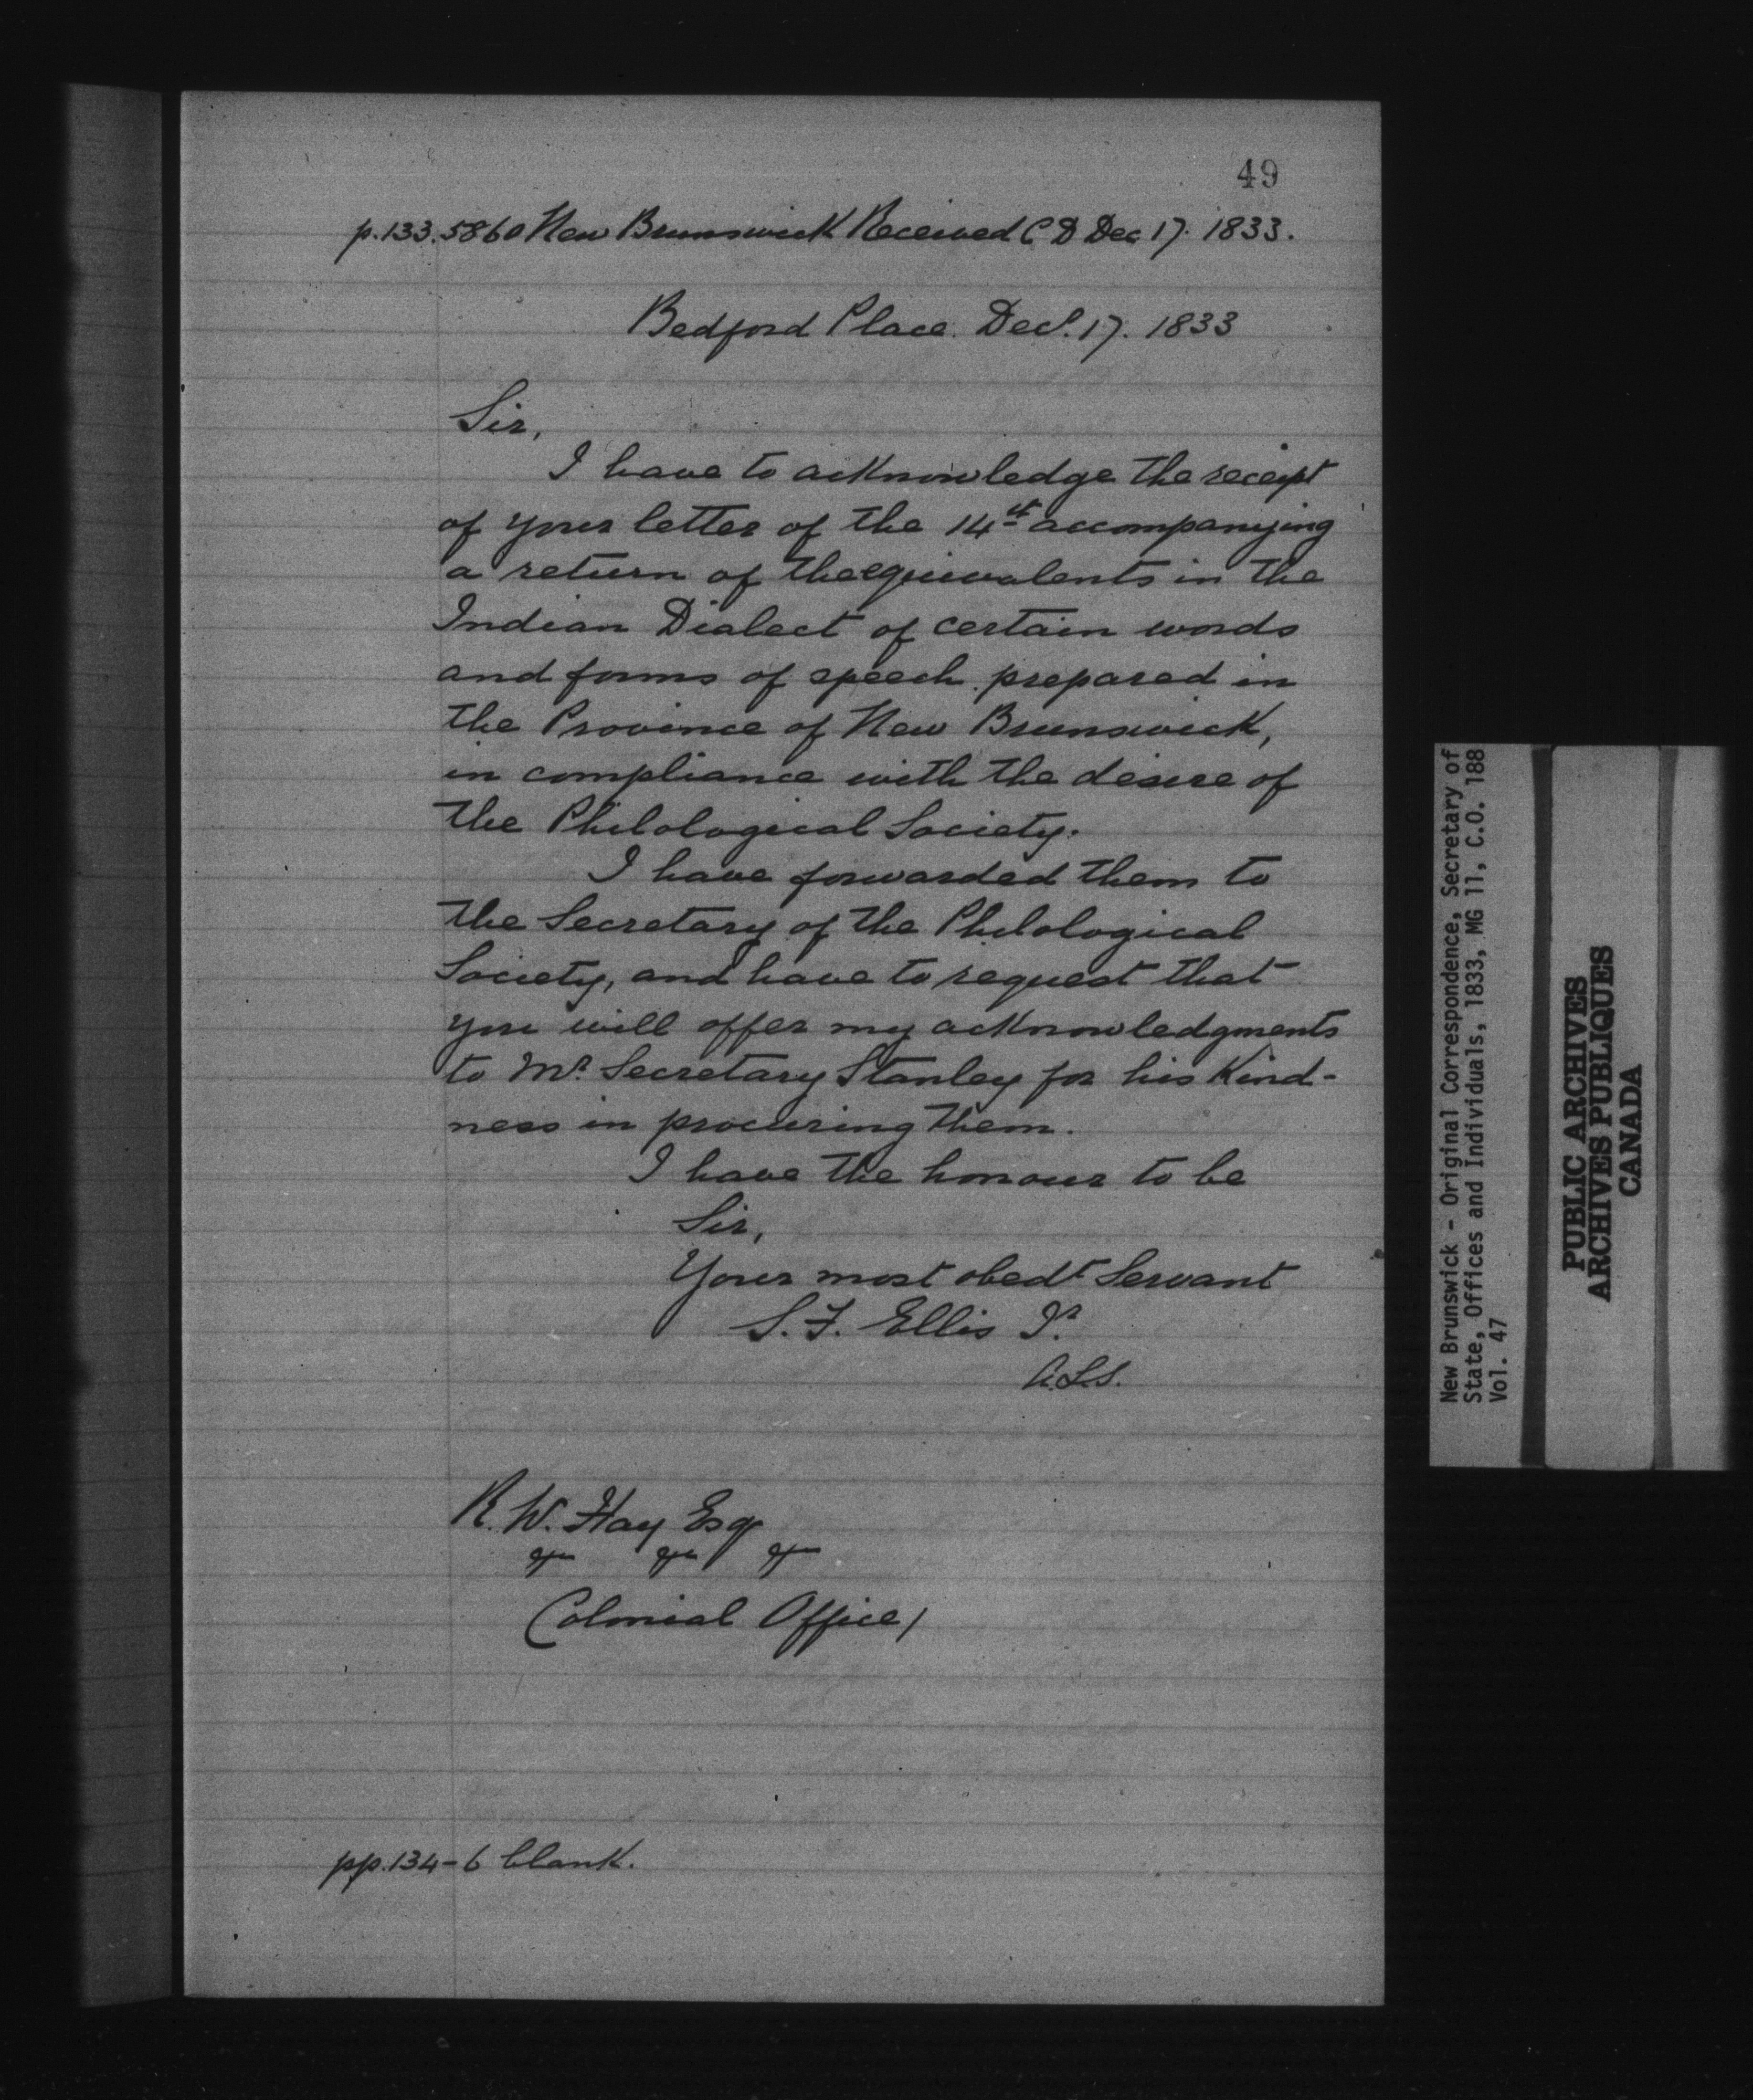 49
p.133. 5860 New Brunswick Received C D Dec 17. 1833.
Bedford Place. Decr. 17. 1833
Sir,
I have to acknowledge the receipt
of your letter of the 14th accompanying
a return of the equivalents in the
Indian Dialect of certain words
and forms of speech prepared in
the Province of New Brunswick,
in compliance with the desire of
the Philological Society.
I have forwarded them to
the Secretary of the Philological
Society, and have to request that
you will offer my acknowledgments
to Mr. Secretary Stanley for his Kind-
ness in procuring them.
I have the honour to be
Sir,
Your most obedt Servant
S. F. Ellis Jr.
A.L.S.
R. W. Hay Esqr
Colonial Office/
pp. 134-6 blank.
New Brunswick - Original Correspondence, Secretary of
State, Offices and Individuals, 1833, MG 11, C.O. 188
Vol. 47
PUBLIC ARCHIVES
ARCHIVES PUBLIQUES
CANADA